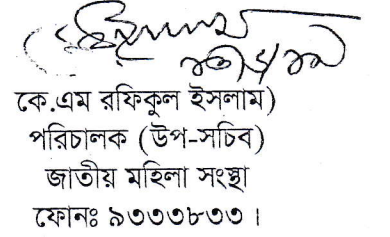 কে.এম রফিকুল ইসলাম)
পরিচালক (উপ-সচিব)
জাতীয় মহিলা সংস্থা
ফোনঃ ৯৩৩৩৮৩৩।